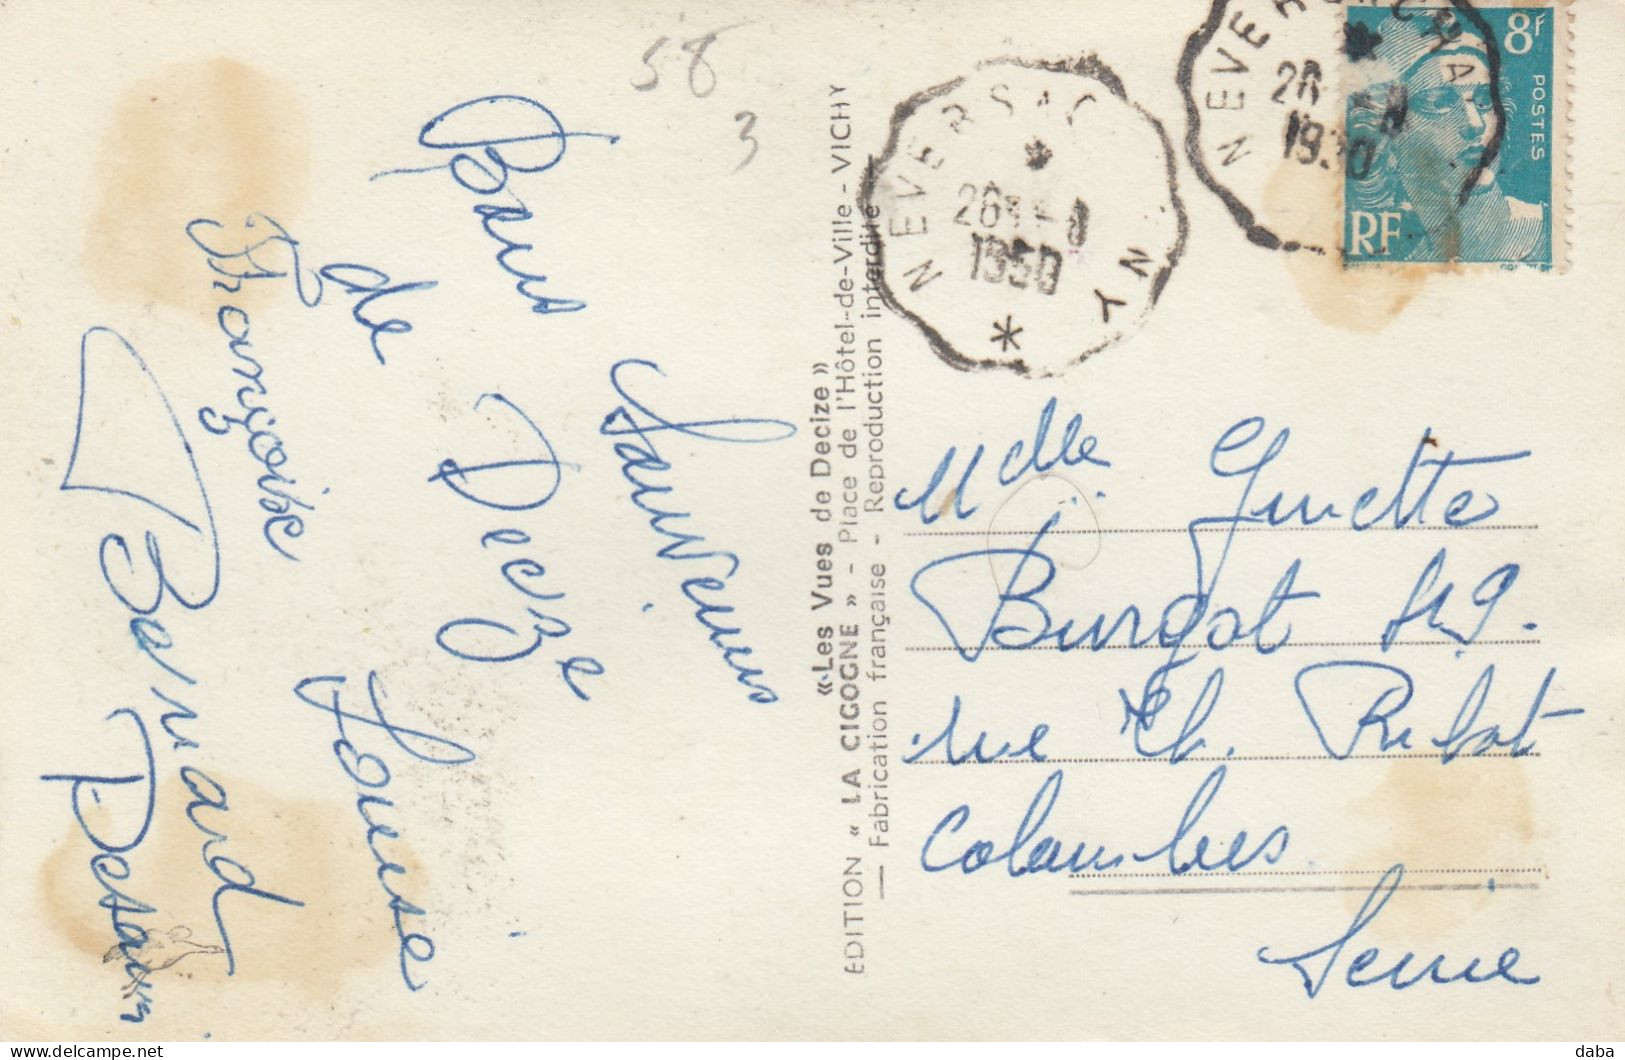 58
3
Bons Souvenirs
de Decize
Françoise Louise
Bernard
«Les Vues de Decize»
EDITION « LA CIGOGNE » - Place de l'Hôtel-de-Ville - VICHY
— Fabrication française - Reproduction interdite —
NEVERS A C NY
26
1950
NEVERS
26
1950
8F
POSTES
RF
Mdelle Ginette
Burgot
rue Ch. Ribot
Colombes
Seine
daba